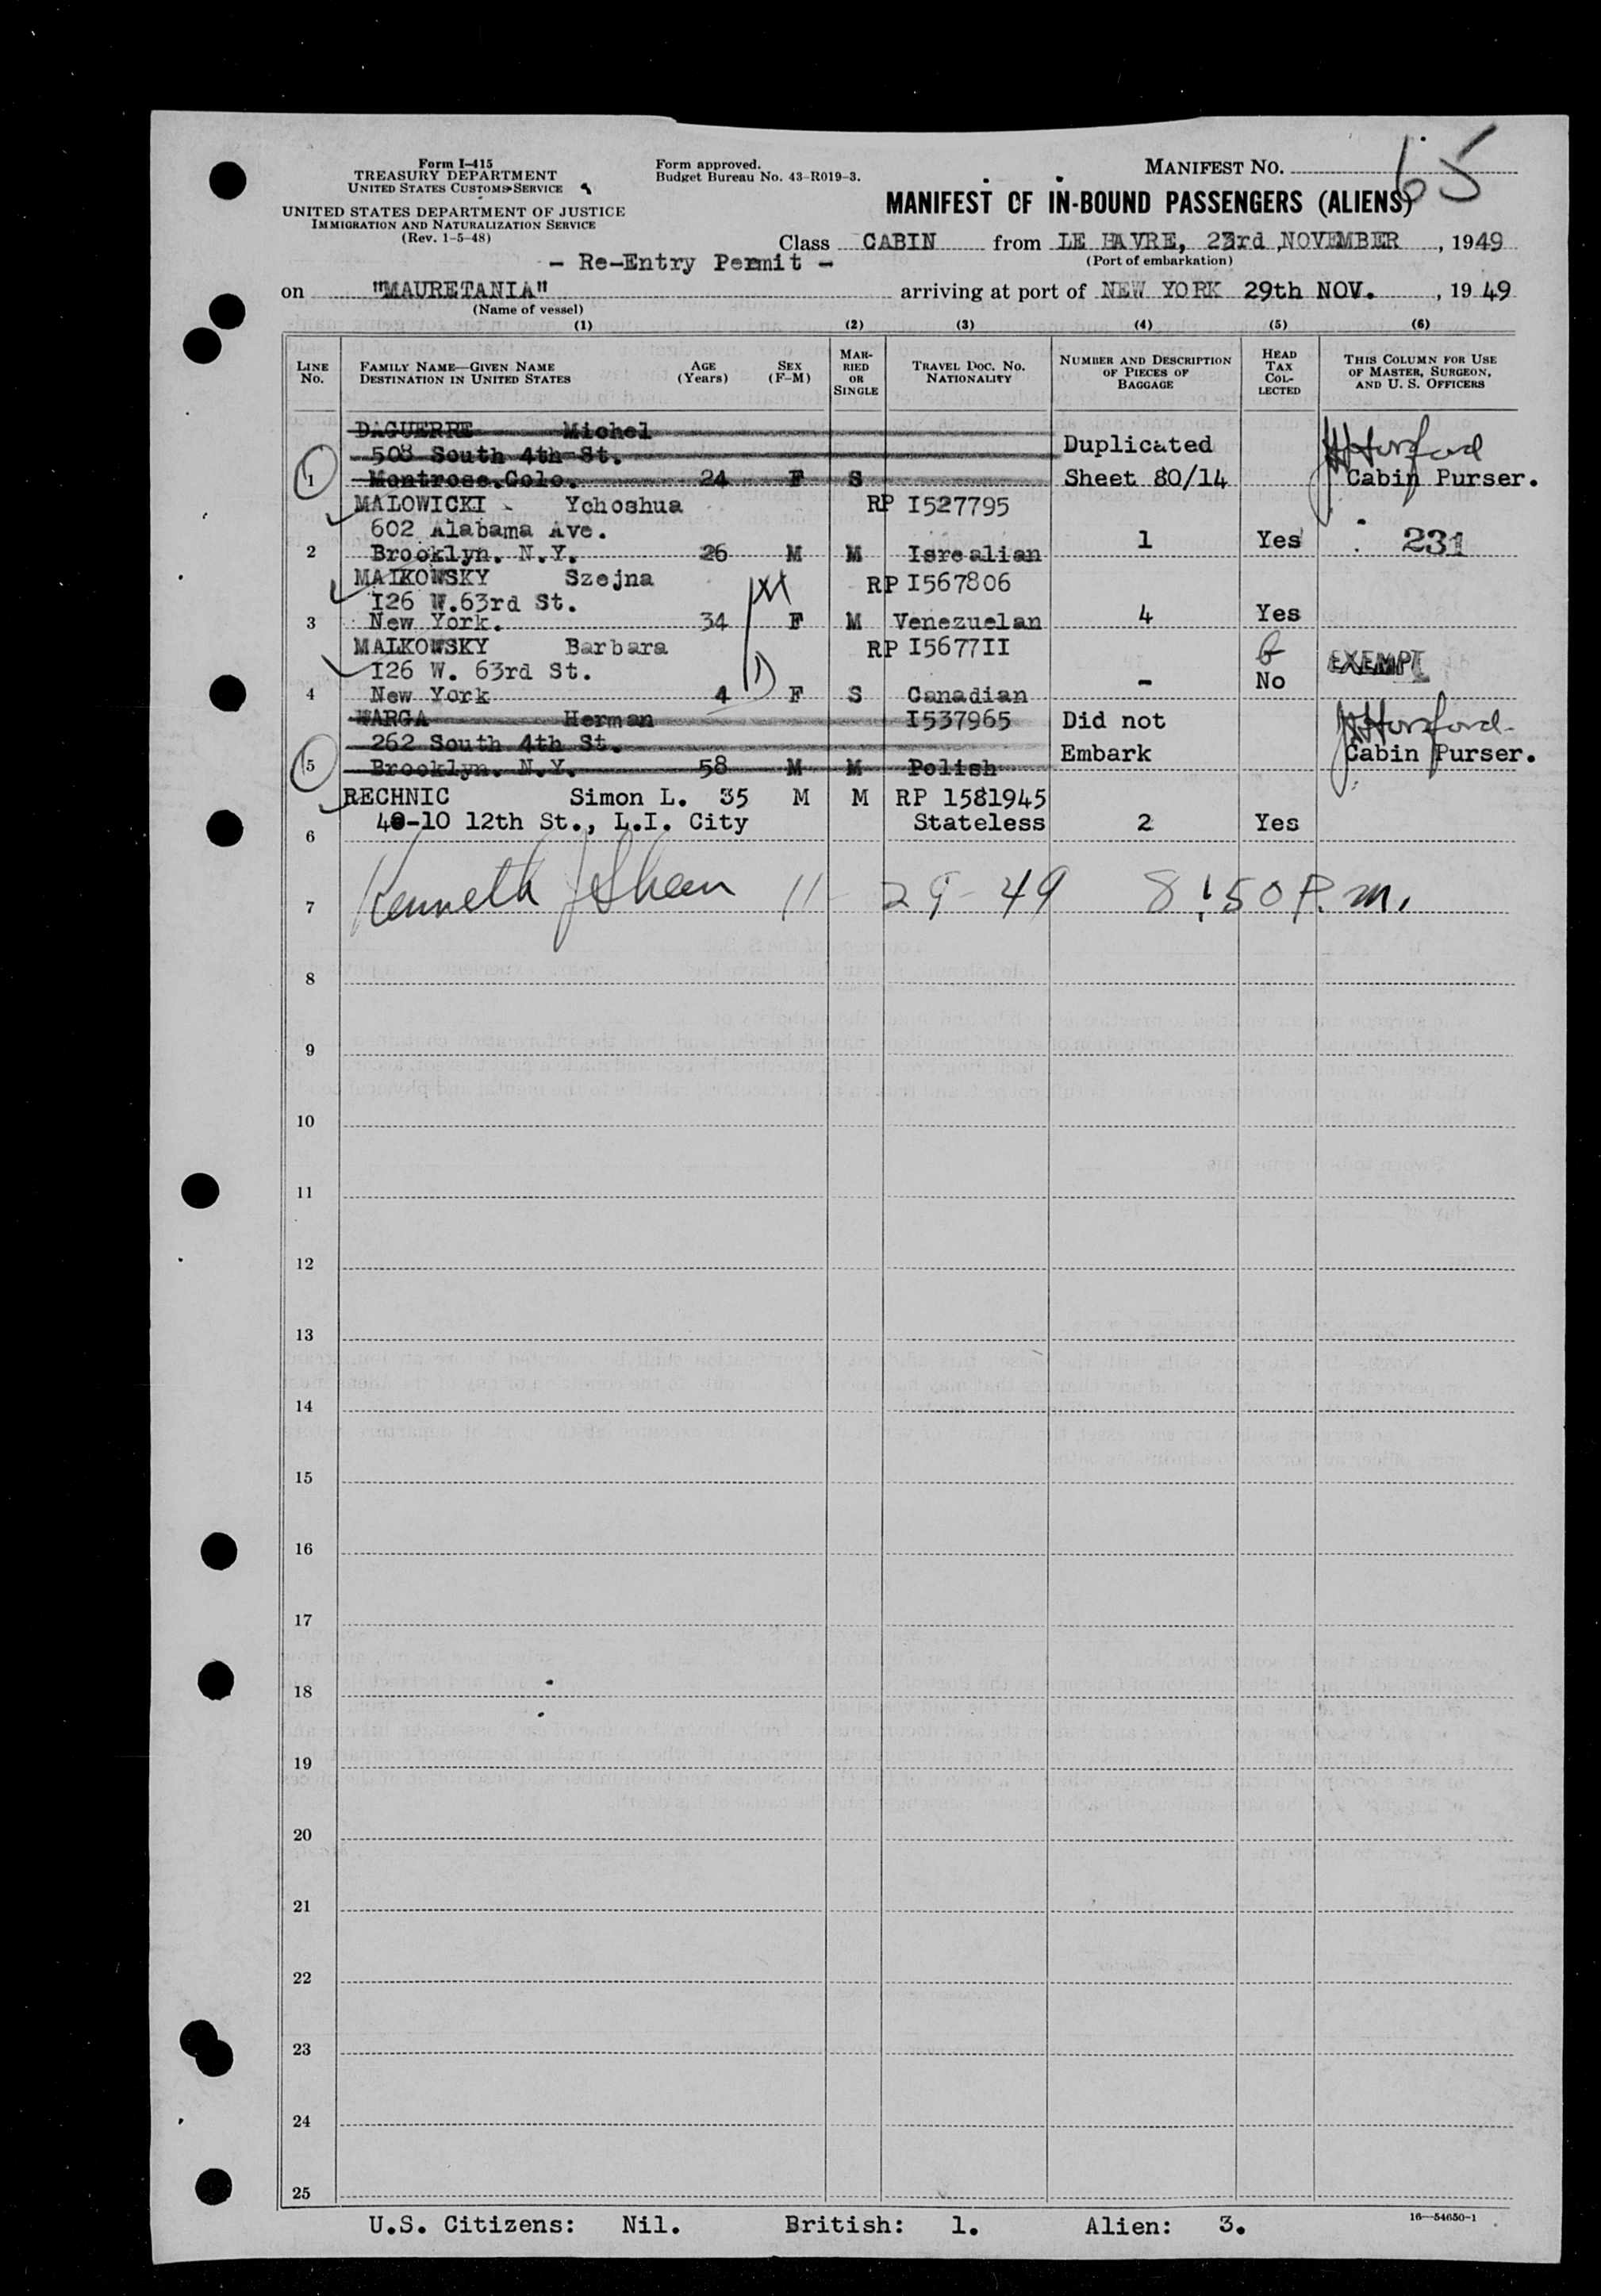 Form I-415
TREASURY DEPARTMENT
UNITED STATES CUSTOMS SERVICE
UNITED STATES DEPARTMENT OF JUSTICE
IMMIGRATION AND NATURALIZATION SERVICE
(Rev. 1-5-48)
Form approved.
Budget Bureau No. 43-R019-3.
MANIFEST NO. 65
MANIFEST OF IN-BOUND PASSENGERS (ALIENS)
Class CABIN from LE HAVRE, 23rd NOVEMBER, 1949
(Port of embarkation)
- Re-Entry Permit -
on "MAURETANIA" arriving at port of NEW YORK 29th NOV., 1949
(Name of vessel)
(1) (2) (3) (4) (5) (6)
LINE NO. FAMILY NAME—GIVEN NAME DESTINATION IN UNITED STATES AGE (Years) SEX (F-M) MARRIED OR SINGLE TRAVEL DOC. NO. NATIONALITY NUMBER AND DESCRIPTION OF PIECES OF BAGGAGE HEAD TAX COLLECTED THIS COLUMN FOR USE OF MASTER, SURGEON, AND U. S. OFFICERS
DAGUERRE Michel Duplicated
508 South 4th St. Horsford
1 Montrose.Colo. 24 F S Sheet 80/14 Cabin Purser.
MALOWICKI Ychoshua RP I527795
602 Alabama Ave.
2 Brooklyn. N.Y. 26 M M Isrealian 1 Yes 231
MALKOWSKY Szejna RP I567806
I26 W.63rd St.
3 New York. 34 F M Venezuelan 4 Yes
MALKOWSKY Barbara RP I5677II
I26 W. 63rd St. EXEMPT
4 New York 4 F S Canadian - No
WARGA Herman I537965 Did not Horsford
262 South 4th St. Embark
5 Brooklyn. N.Y. 58 M M Polish Cabin Purser.
RECHNIC Simon L. 35 M M RP 1581945
40-10 12th St., L.I. City Stateless 2 Yes
6
7 Kenneth J Shean 11-29-49 8:50 P.m.
8
9
10
11
12
13
14
15
16
17
18
19
20
21
22
23
24
25
U.S. Citizens: Nil. British: 1. Alien: 3.
16—54650-1